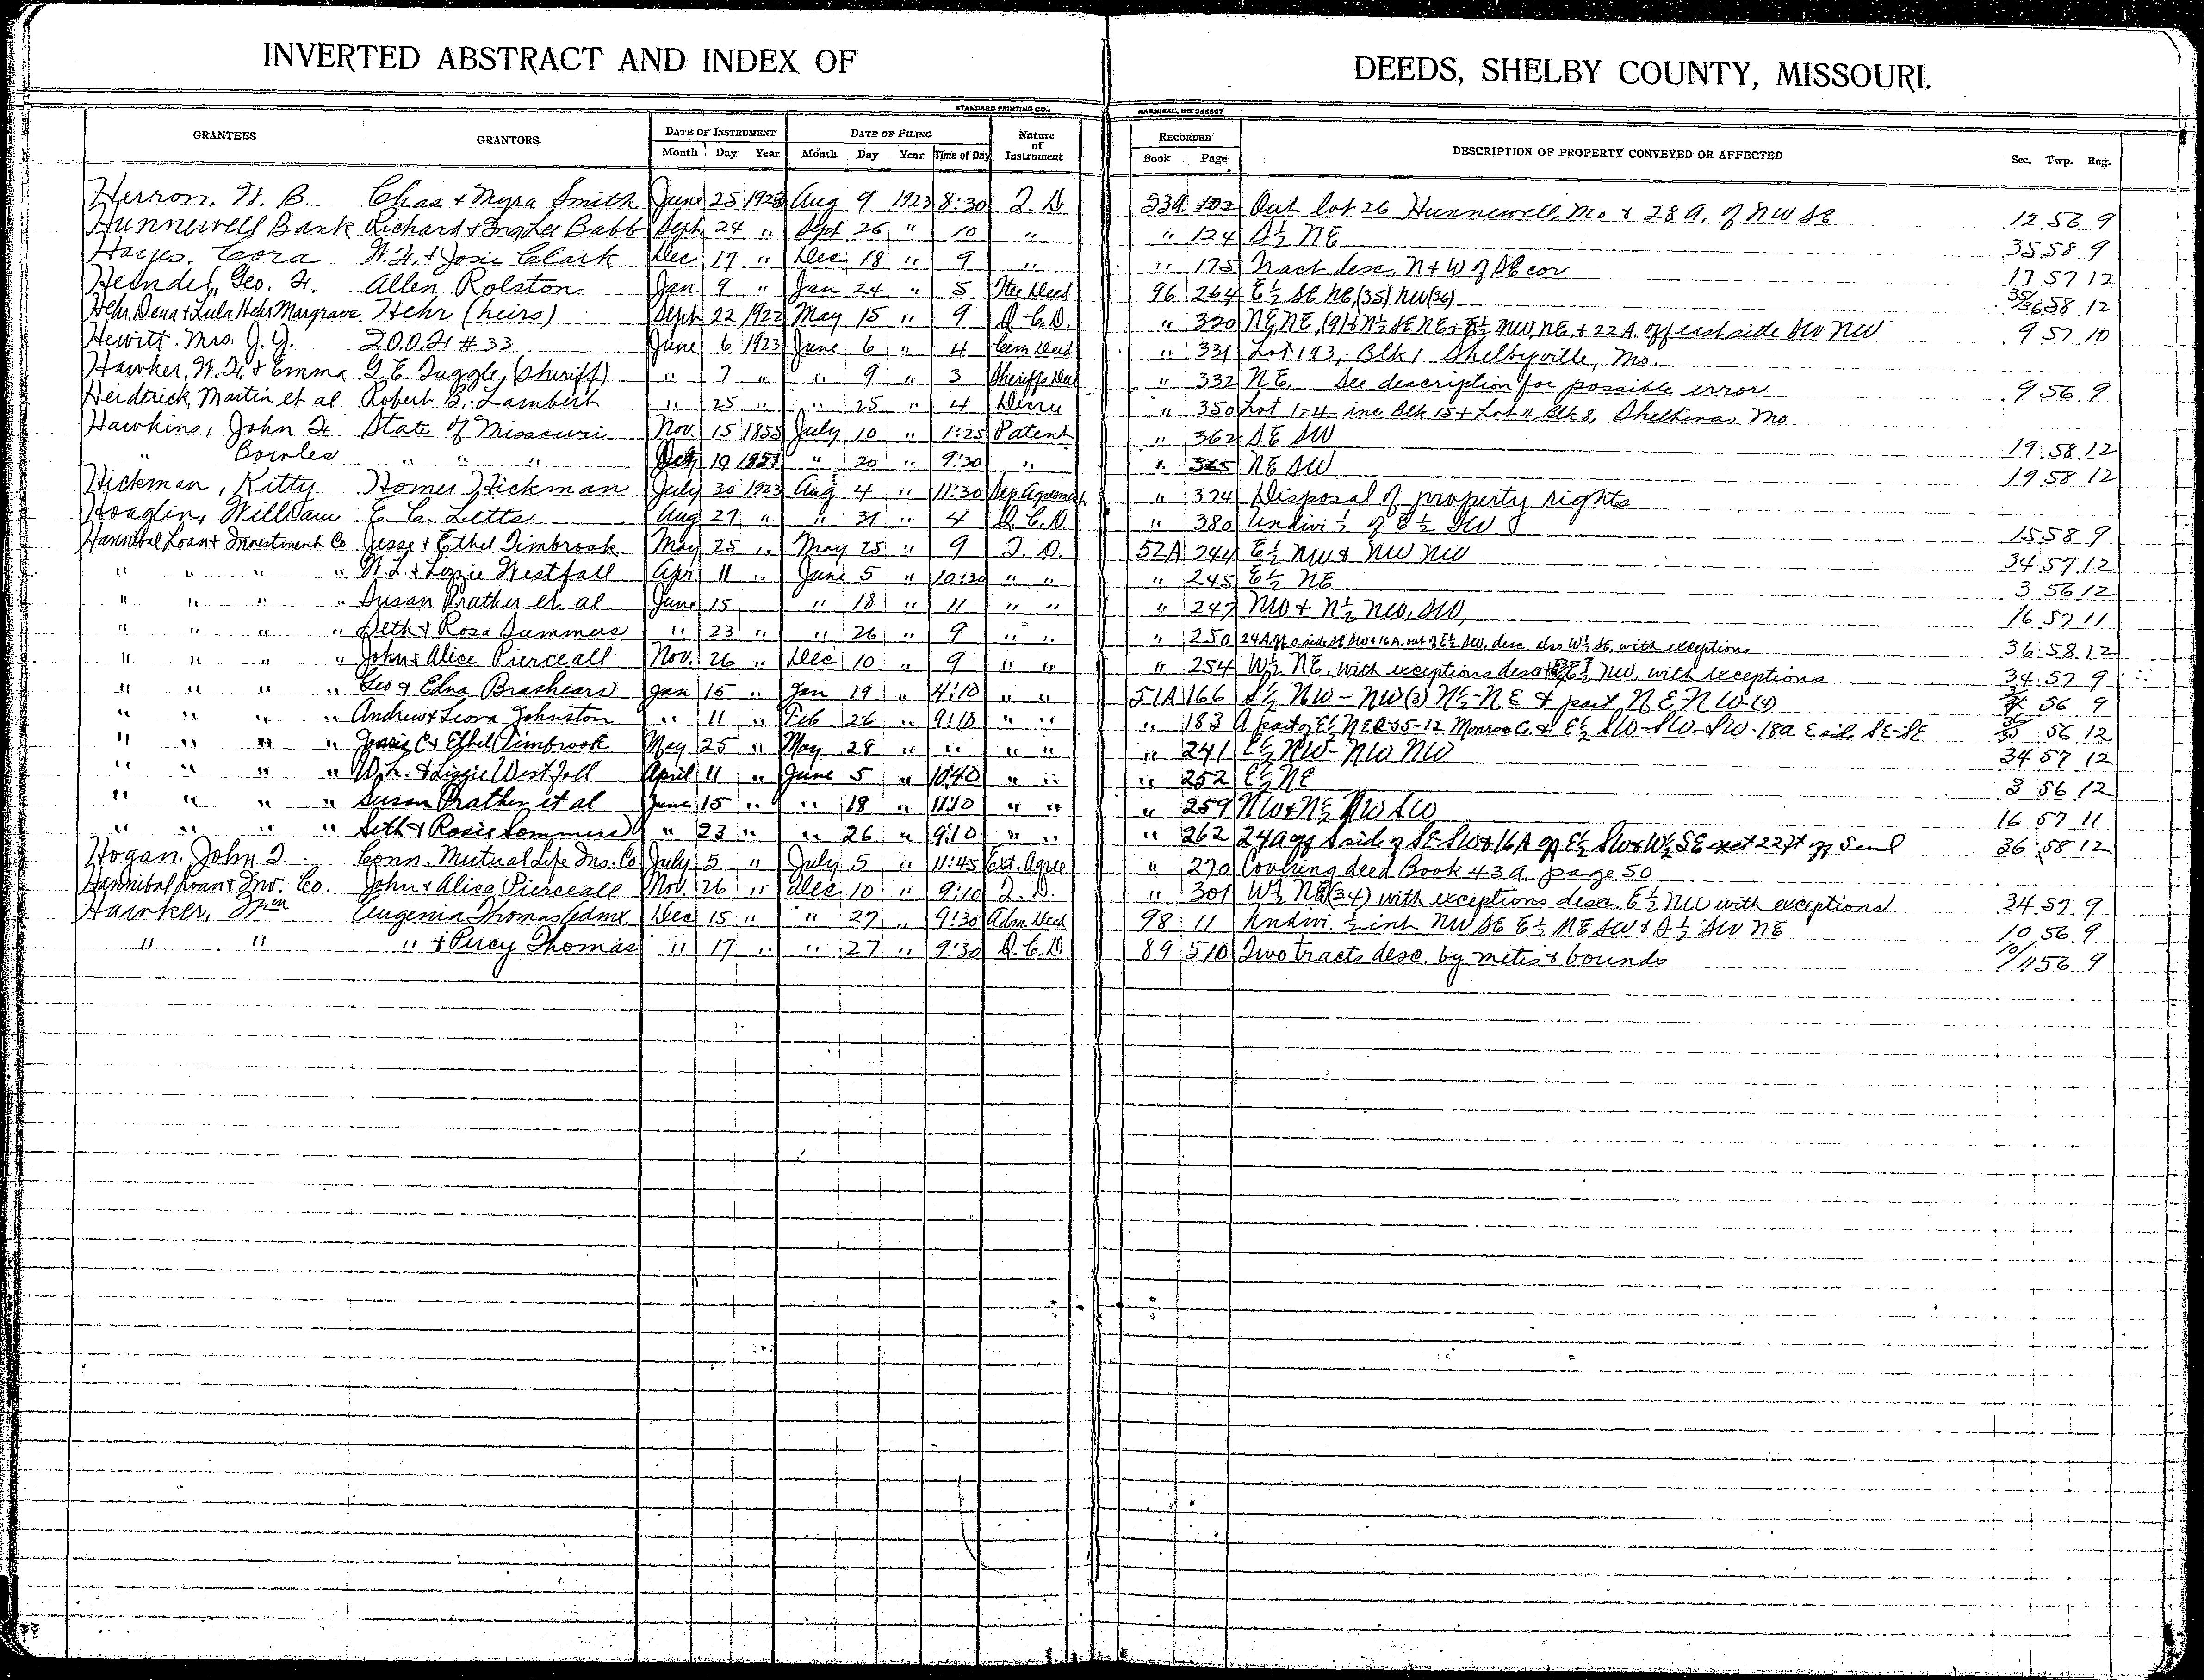 INVERTED ABSTRACT AND INDEX OF DEEDS, SHELBY COUNTY, MISSOURI.
STANDARD PRINTING CO., HANNIBAL, MO
GRANTEES GRANTORS DATE OF INSTRUMENT DATE OF FILING Nature of Instrument RECORDED DESCRIPTION OF PROPERTY CONVEYED OR AFFECTED Sec. Twp. Rng.
Month Day Year Month Day Year Time of Day Book Page
Herron, H. B. Chas + Myra Smith June 25 1923 Aug 9 1923 8:30 T. D. 53A 102 Out lot 26 Hunnewell, Mo & 28 A. of NW SE 12 56 9
Hunnewell Bank Richard + Lee Babb Sept 24 " Sept 26 " 10 " " 124 S½ NE 35 58 9
Hayes, Cora W. H. + Josie Clark Dec 17 " Dec 18 " 9 " " 175 Tract desc. N + W of SE cor 17 57 12
Geo. H. Allen Rolston Jan 9 " Jan 24 " 5 Deed 96 264 E½ SE NE (35) NW (36) 35/36 58 12
Hehr, Dena + Lula Hehr Margrave Hehr (heirs) Sept 22 1922 May 15 " 9 Q. C. D. " 320 NE, NE (9) & N½ SE NE + E½ NW, NE, + 22 A. off east side SW NW 9 57 10
Hewitt, Mrs. J. Y. I.O.O.F # 33 June 6 1923 June 6 " 4 Cem Deed " 331 Lot 193, Blk 1 Shelbyville, Mo.
Hawker, W. H. + Emma G. E. Tuggle, (sheriff) " 7 " " 9 " 3 Sheriffs Deed " 332 NE, See description for possible error 9 56 9
Heidrick, Martin et al Robert B. Lambert " 25 " " 25 " 4 Decree " 350 Lot 1-4 inc Blk 15 + Lot 4, Blk 8, Shelbina, Mo
Hawkins, John H State of Missouri Nov. 15 1855 July 10 " 1:25 Patent " 362 SE SW 19 58 12
" Bowles " " " Oct 10 " 20 " 9:30 " " 365 NE SW 19 58 12
Hickman, Kitty Homer Hickman July 30 1923 Aug 4 " 11:30 Sep Agreement " 374 Disposal of property rights
Hoaglin, William E. C. Letts Aug 27 " " 31 " 4 Q. C. D. " 380 Undivi ½ of E½ SW 15 58 9
Hannibal Loan + Investment Co Jesse + Ethel Timbrook May 25 " May 25 " 9 T. D. 52A 244 E½ NW & NW NW 34 57 12
" " " " W. L. + Lizzie Westfall Apr 11 " June 5 " 10:30 " " " 245 E½ NE 3 56 12
" " " " Susan Prather et al June 15 " 18 " 11 " " " 247 NW + N½ NW, SW, 16 57 11
" " " " Seth + Rosa Summers " 23 " " 26 " 9 " " " 250 24 A. off S side SE SW & 16 A. out of E½ SW, desc. also W½ SE, with exceptions 36 58 12
" " " " John + Alice Pierceall Nov. 26 " Dec 10 " 9 " " " 254 W½ NE, with exceptions desc E½ NW, with exceptions 34 57 9
" " " " Geo & Edna Brashears Jan 15 " Jan 19 " 4:10 " " 51A 166 S½ NW - NW (3) N½-NE & part NE NW (4) 56 9
" " " " Andrew + Leora Johnston " 11 " Feb 26 " 9:10 " " " 183 A part of E½ NE 2-55-12 Monroe Co. & E½ SW-SW-SW-18a E side SE-SE 56 12
" " " " C + Ethel Timbrook May 25 " May 28 " " " " " 241 E½ NW- NW NW 34 57 12
" " " " W. L. + Lizzie Westfall April 11 " June 5 " 10:40 " " " 252 E½ NE 3 56 12
" " " " Susan Prather et al June 15 " " 18 " 11:10 " " " 259 NW + N½ NW SW 16 57 11
" " " " Seth + Rosie Sommers " 23 " " 26 " 9:10 " " " 262 24a off S side of SE-SW & 16 A of E½ SW & W½ SE exct 22 ft off S end 36 58 12
Hogan, John T. Conn. Mutual Life Ins. Co July 5 " July 5 " 11:45 Ext. Agree " 270 Covering deed Book 43a, page 50
Hannibal Loan + Inv. Co. John + Alice Pierceall Nov. 26 " Dec 10 " 9:10 T. D. " 301 W½ NE (34) with exceptions desc. E½ NW with exceptions 34 57 9
Hawker, Wm Eugenia Thomas Admx. Dec 15 " " 27 " 9:30 Adm. Deed 98 11 Undivi. ½ int NW SE E½ NE SW & S½ SW NE 10 56 9
" " " + Percy Thomas " 17 " " 27 " 9:30 Q. C. D. 89 510 Two tracts desc. by metes & bounds 10/11 56 9